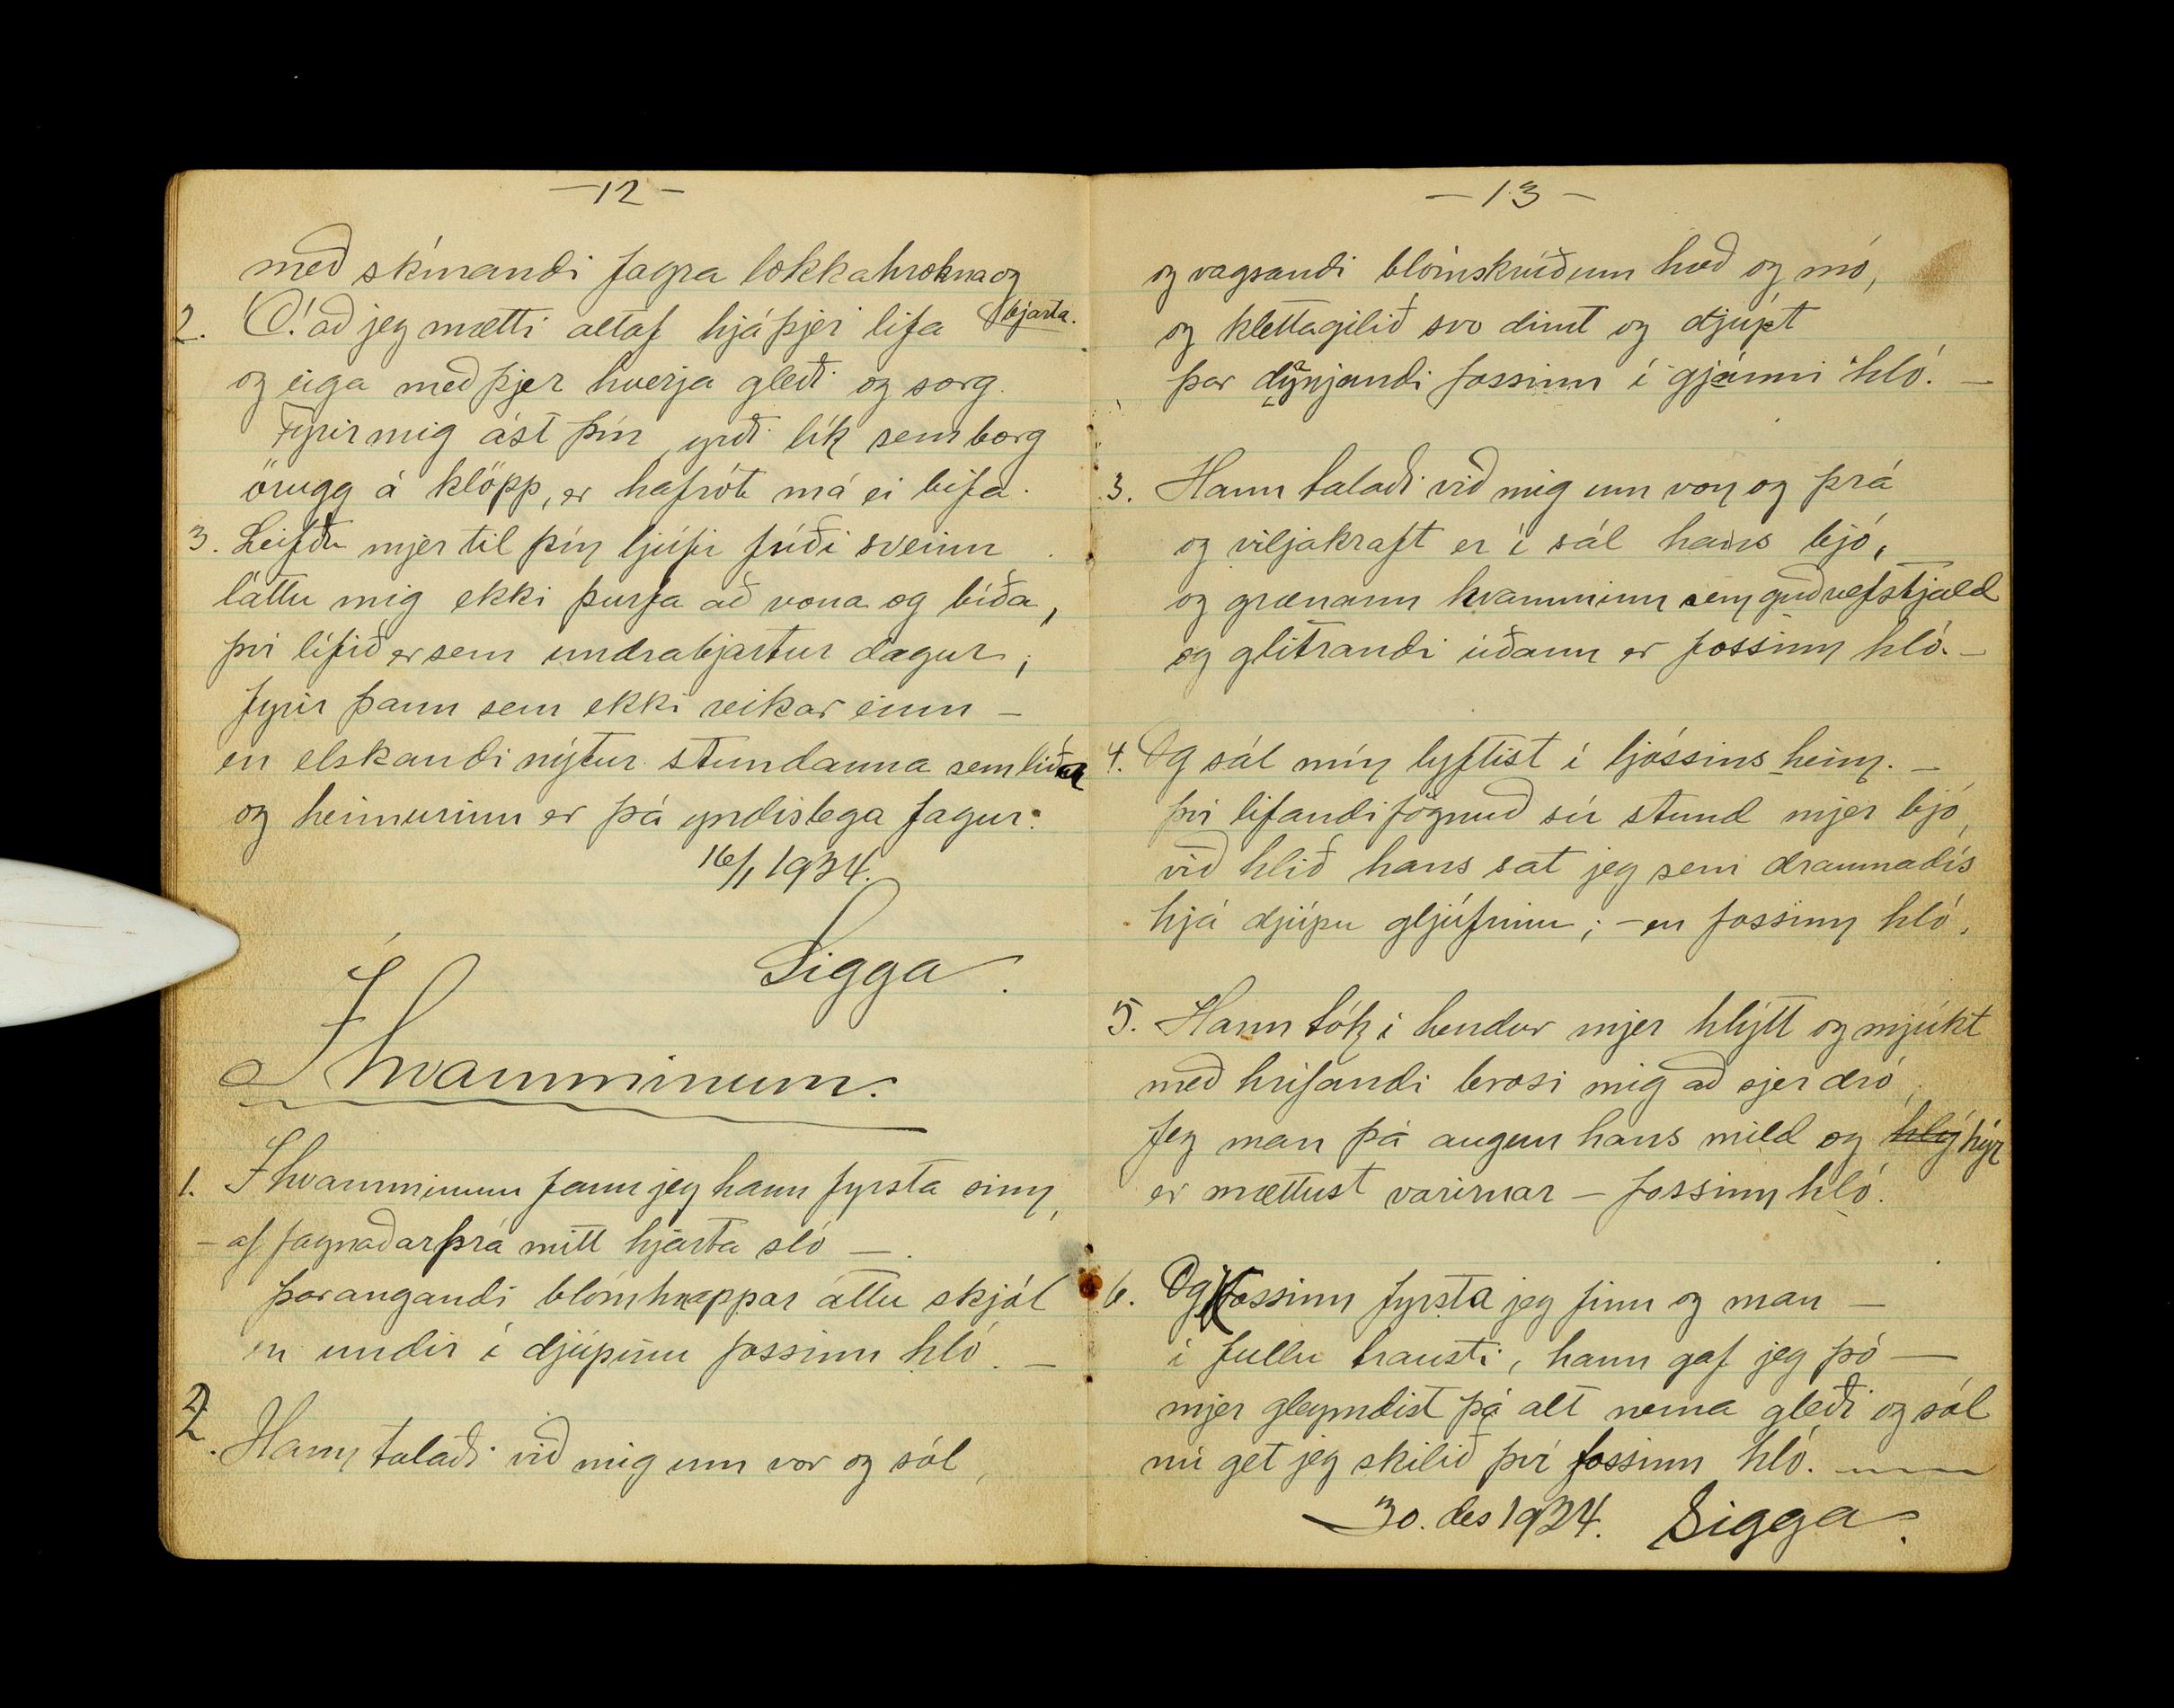 -12-
með skínandi fagra lokkahrokna og
bjarta.
2. Ó! að jeg mætti altaf hjá þjer lifa
og eiga með þjer hverja gleði og sorg.
Fyrir mig ást þín yrði lík sem borg
örugg á klöpp, er hafrót má ei bifa.
3. Leifðu mjer til þín ljúfi fríði sveinn
láttu mig ekki þurfa að vona og bíða,
því lífið er sem undrabjartur dagur,
fyrir þann sem ekki reikar einn -
en elskandi nýtur stundanna sem líða
og heimurinn er þá yndislega fagur.
16/1 1934.
Sigga.
Í hvamminum.
1. Í hvamminum fann jeg hann fyrsta sinn,
- af fagnaðarþrá mitt hjarta sló -.
þar angandi blómhnappar áttu skjól
en undir í djúpinu fossinn hló. -
2. Hann talaði við mig um vor og sól,
-13-
og vagsandi blómskrúðum hæð og mó,
og klettagilið svo dimt og djúpt
þar dynjandi fossinn í gjánni hló. -
3. Hann talaði við mig um von og þrá
og viljakraft er í sál hans bjó,
og grænann hvamminn sem guðvefstjald
og glitrandi úðann er fossinn hló. -
4. Og sál mín lyftist í ljóssins heim. -
því lifandi fögnuð sú stund mjer bjó,
við hlið hans sat jeg sem draumadís
hjá djúpu gljúfrinu; - en fossinn hló.
5. Hann tók í hendur mjer hlýtt og mjúkt
með hrífandi brosi mig að sjer dró,
Jeg man þá augun hans mild og hlý hýr
er mættust varirnar - fossinn hló.
6. Og fossinn fyrsta jeg finn og man -
í fullu trausti, hann gaf jeg þó -
mjer gleymdist þá alt nema gleði og sól
nú get jeg skilið því fossinn hló. -
30. des 1934. Sigga.